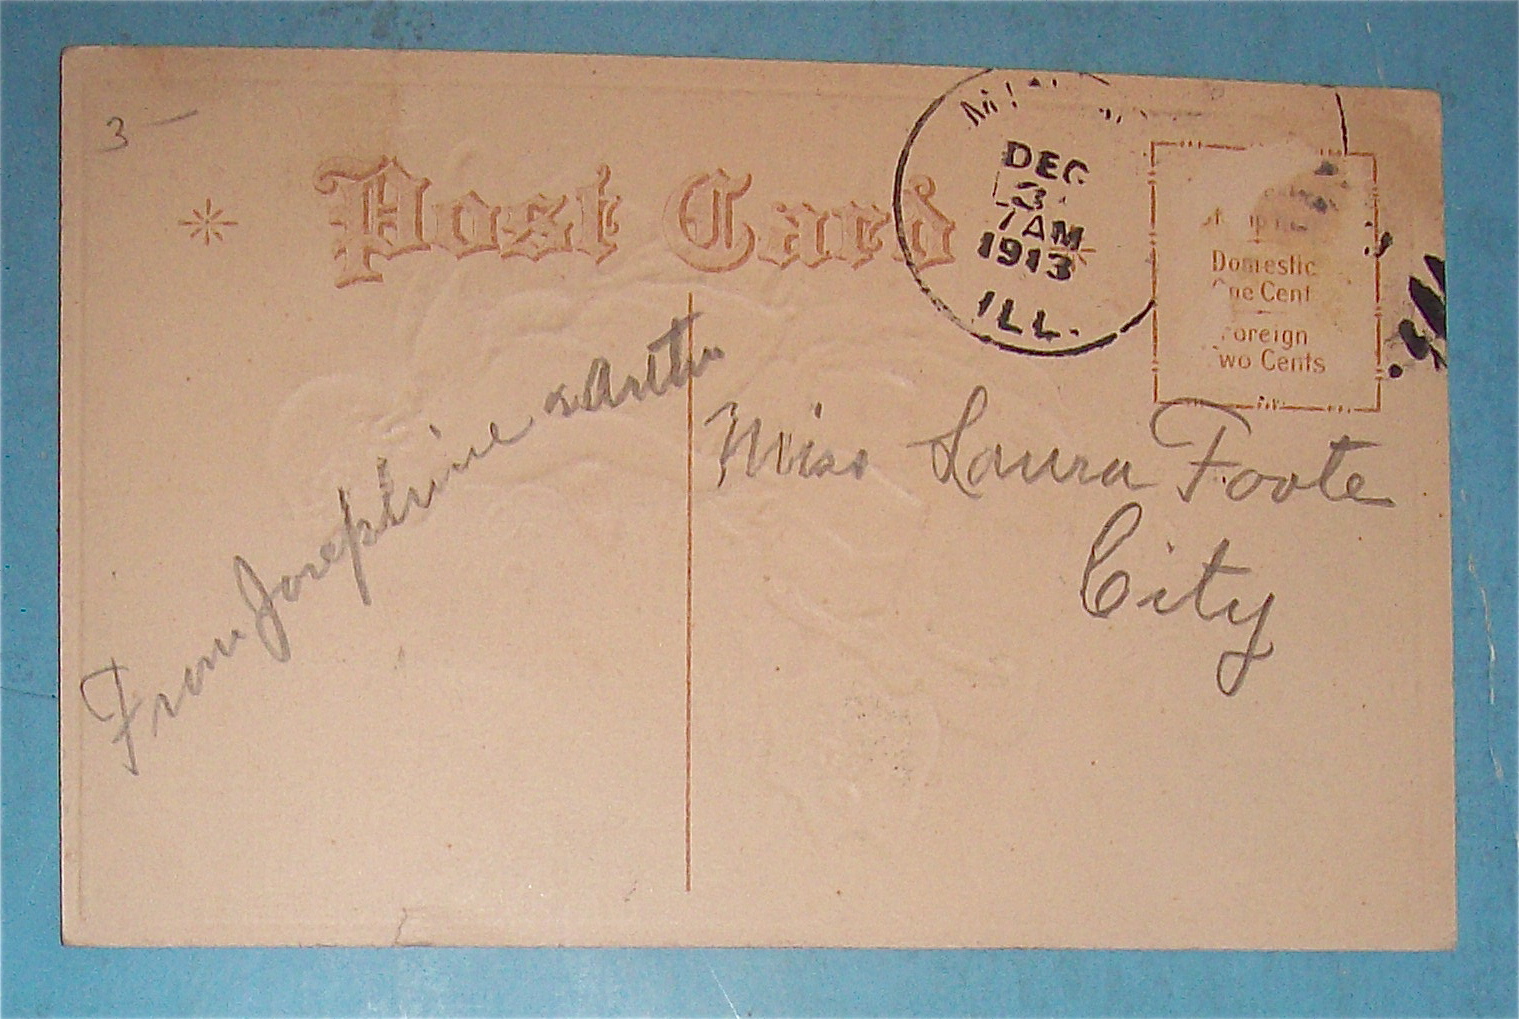 3 —
Post Card
DEC
3
7 AM
1913
ILL.
Domestic
One Cent
Foreign
Two Cents
From Josephine &
Miss Laura Foote
City